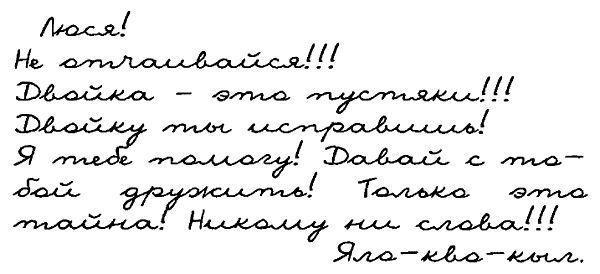 Люся!
Не отчаивайся!!!
Двойка - это пустяки!!!
Двойку ты исправишь!
Я тебе помогу! Давай с то-
бой дружить! Только это
тайна! Никому ни слова!!!
Яло-кво-кыл.